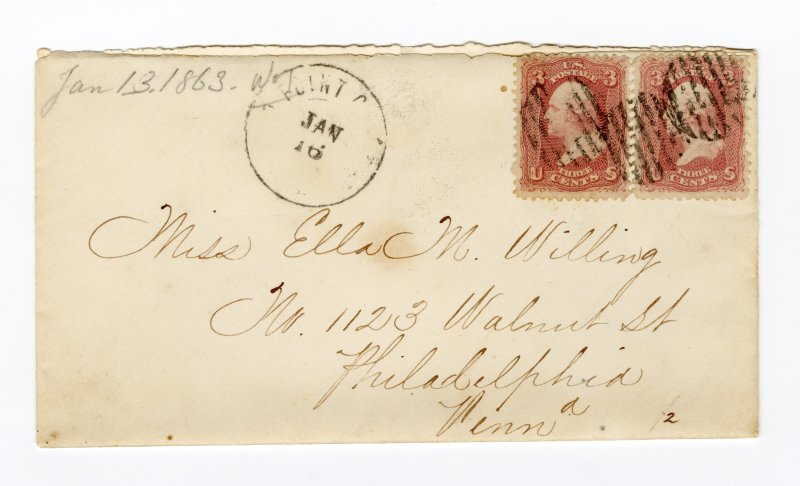 Jan 13. 1863.
POINT
JAN
16
3 U.S. 3
POSTAGE
U THREE S
CENTS
3
U THREE S
CENTS
Miss Ella M. Willing
No. 1123 Walnut St
Philadelphia
Penn a
12